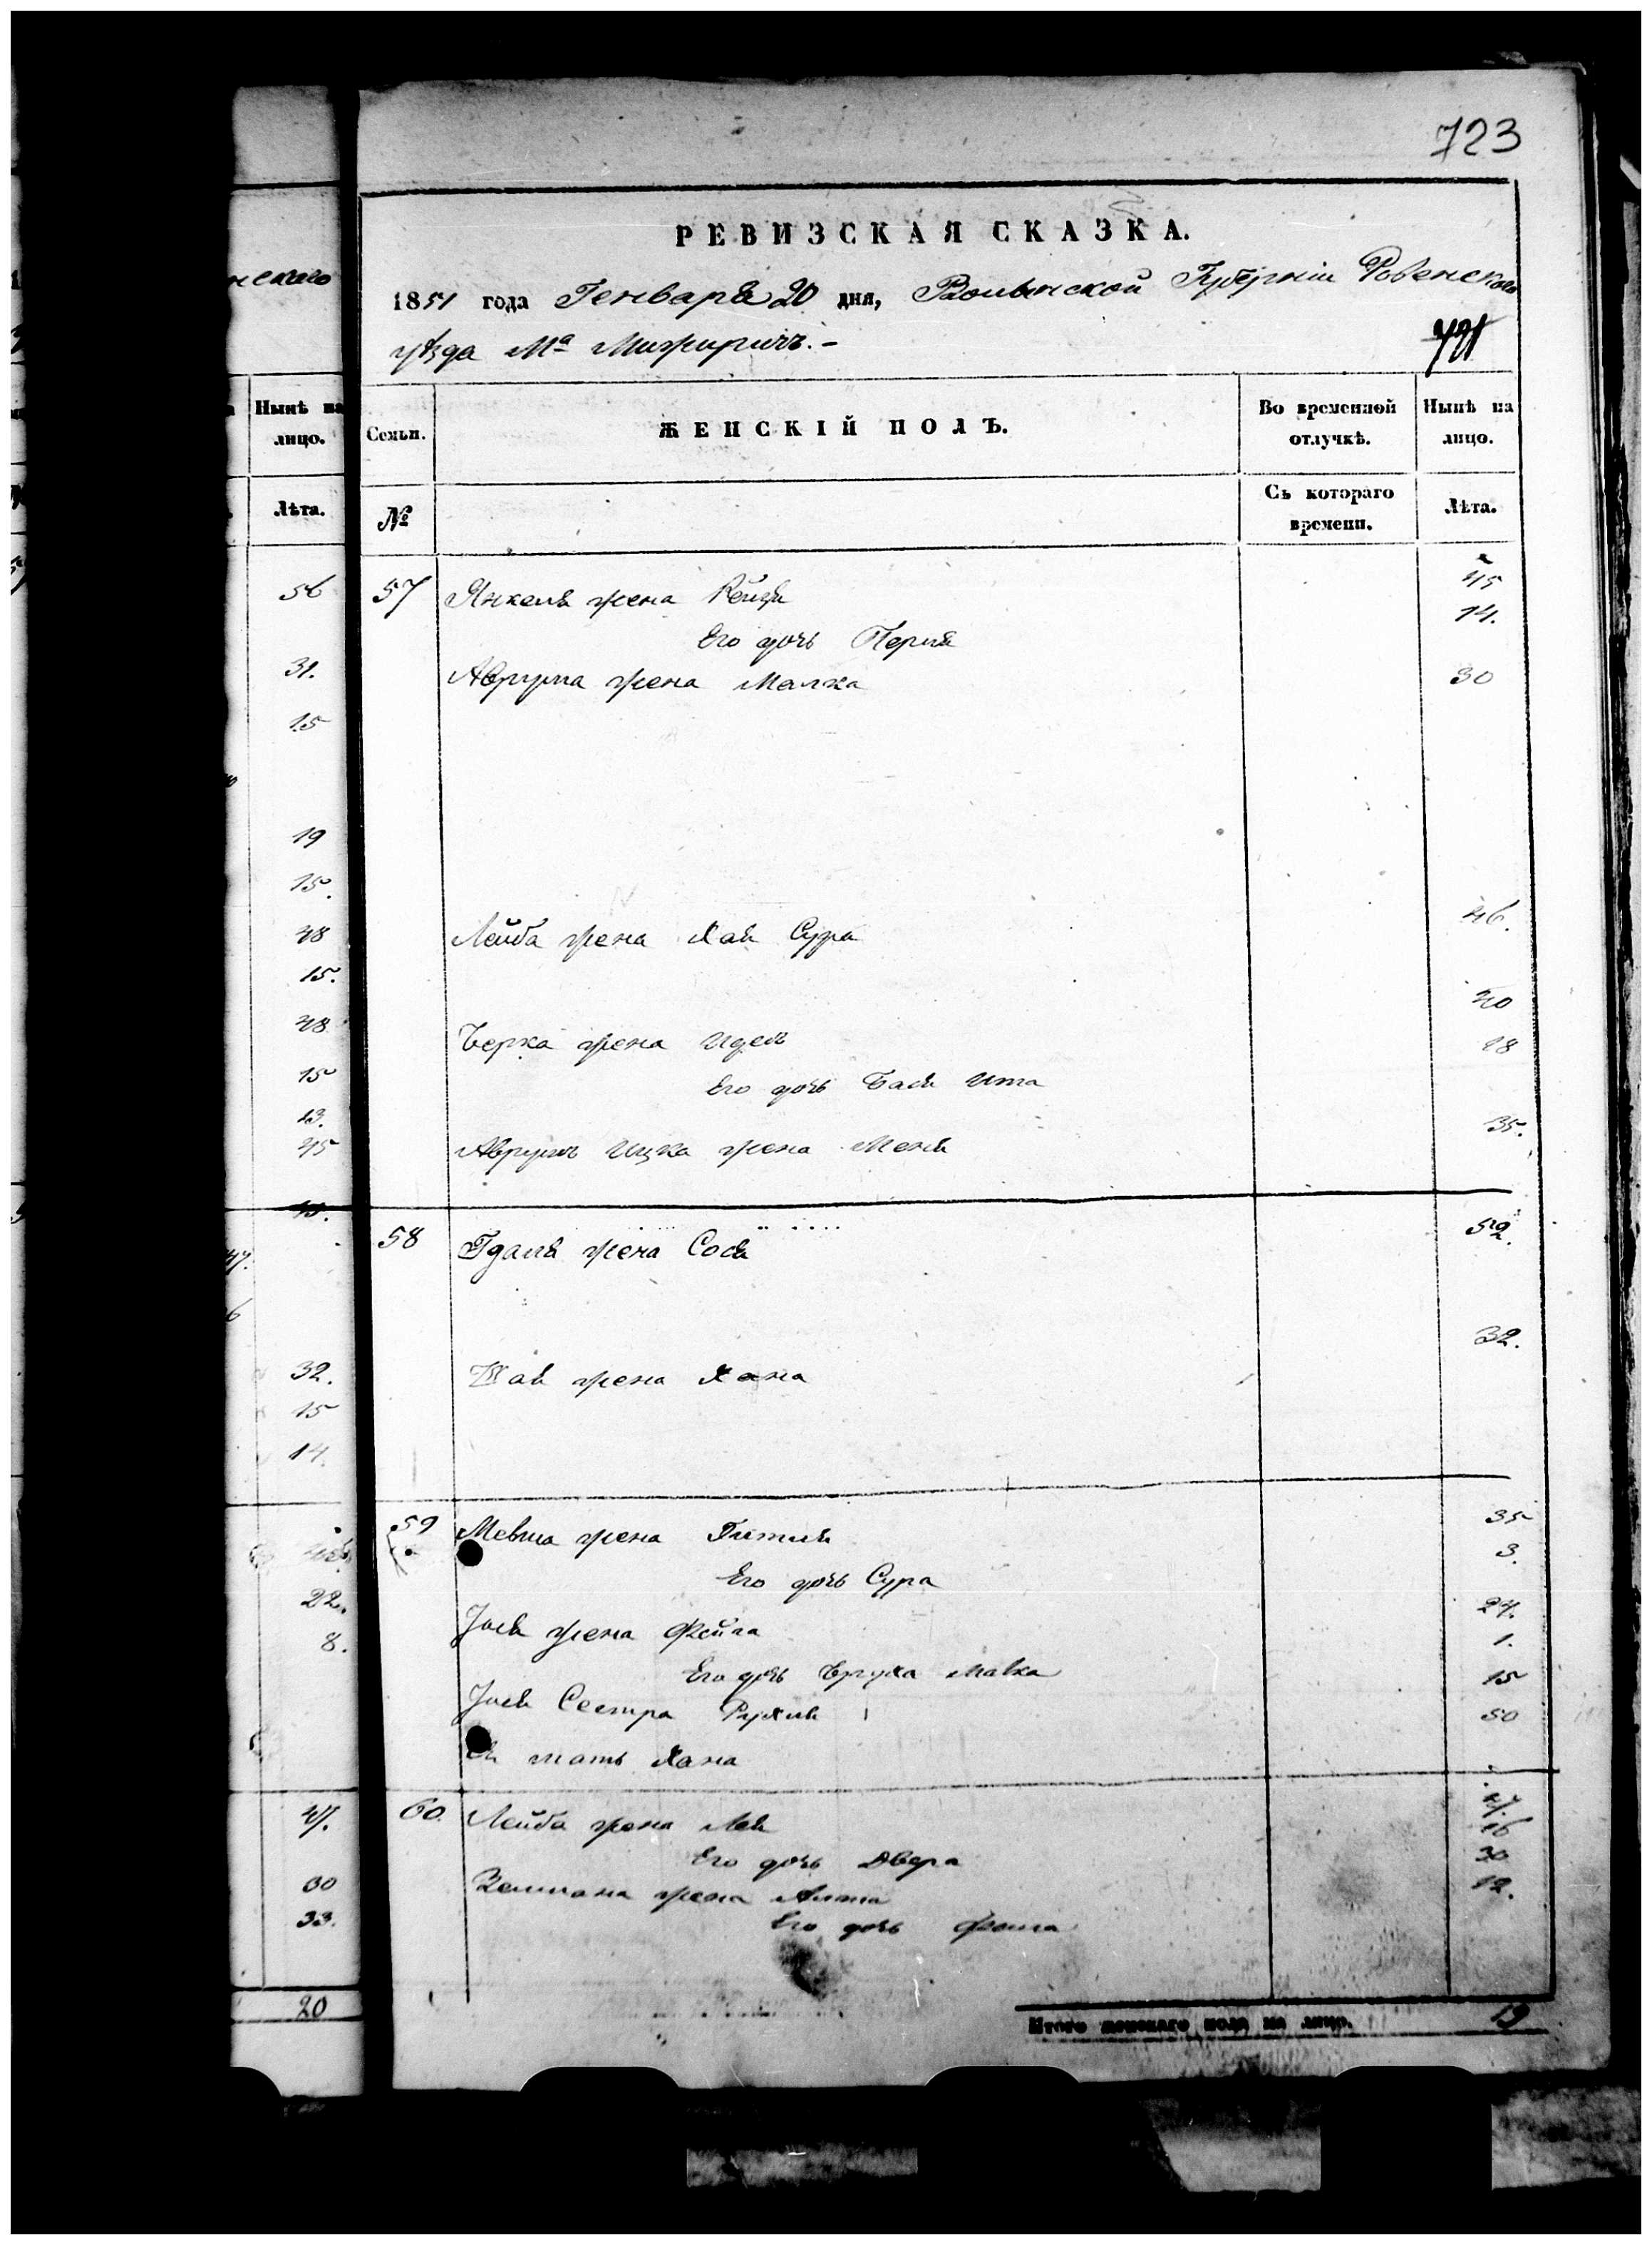 723
РЕВИЗСКАЯ СКАЗКА.
1851 года Генваря 20 дня, Волынской Губерніи Ровенского
уѣзда Мª Мижиричъ.-
нскаго
Нынѣ на лицо.
Лѣта.
56
31.
15
19
15.
48
15.
48
15
13.
45
15.
47.
6
32.
15
14.
22.
8.
47.
30
33.
20
Семьи.
ЖЕНСКІЙ ПОЛЪ.
Во временной отлучкѣ.
Нынѣ на лицо.
№
Съ котораго времени.
Лѣта.
57 Янкеля жена Рейзя 45
Его дочь Перля 14.
Аврума жена Малка 30
Лейба жена Хая Сура 46.
Берка жена Идель 40
Его дочь Бася Ита 18
Аврумъ Ицка жена Меня 35.
58 Гдаля жена Сося 52.
Шая жена Хана 32.
59 Мевша жена Гитля 35
Его дочь Сура 3.
Іося жена Фейга 24.
Его дочь Бруха Малка 1.
Іося Сестра Рухля 15
мать Хана 50
60. Лейба жена Лея 47.
Его дочь Двера 16
Зельмана жена Алта 30
Его дочь Фейга 12.
Итого женскаго пола на лицо. 19